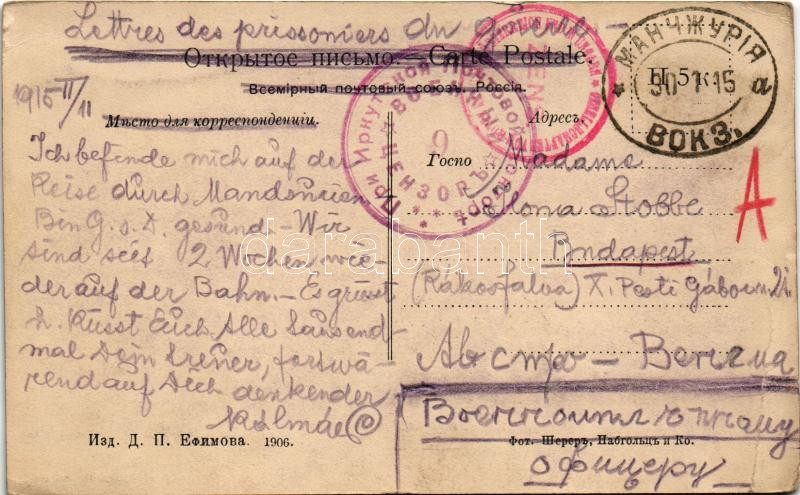 Lettres des prisonniers du guerre –
Открытое письмо. — Carte Postale.
Всемірный почтовый союзъ. Россія.
1915 II/11
Мѣсто для корреспонденціи.
Адресъ.
Госпо
МАНЧЖУРІЯ
30 1 15
ВОКЗ.
a
При Иркутской Почтовой Конторѣ
ВОЕННЫЙ
ЦЕНЗОРЪ
9
ZENS
A
Ich befinde mich auf der
Reise durch Mandschurien
Bin G. s. D. gesund – Wir
sind seit 2 Wochen wie-
der auf der Bahn. – Es grüsst
u. küsst Euch Alle tausend-
mal Dein treuer, fortwä-
rend auf Dich denkender
Kálmán
Madame
Ilona Stobbe
Budapest
(Rákosfalva) X. Pesti Gábor u. 21.
Австро – Венгриа
Военноплѣнному
офицеру –
Изд. Д. П. Ефимова. 1906.
Фот. Шереръ, Набгольцъ и Ко.
darabanth